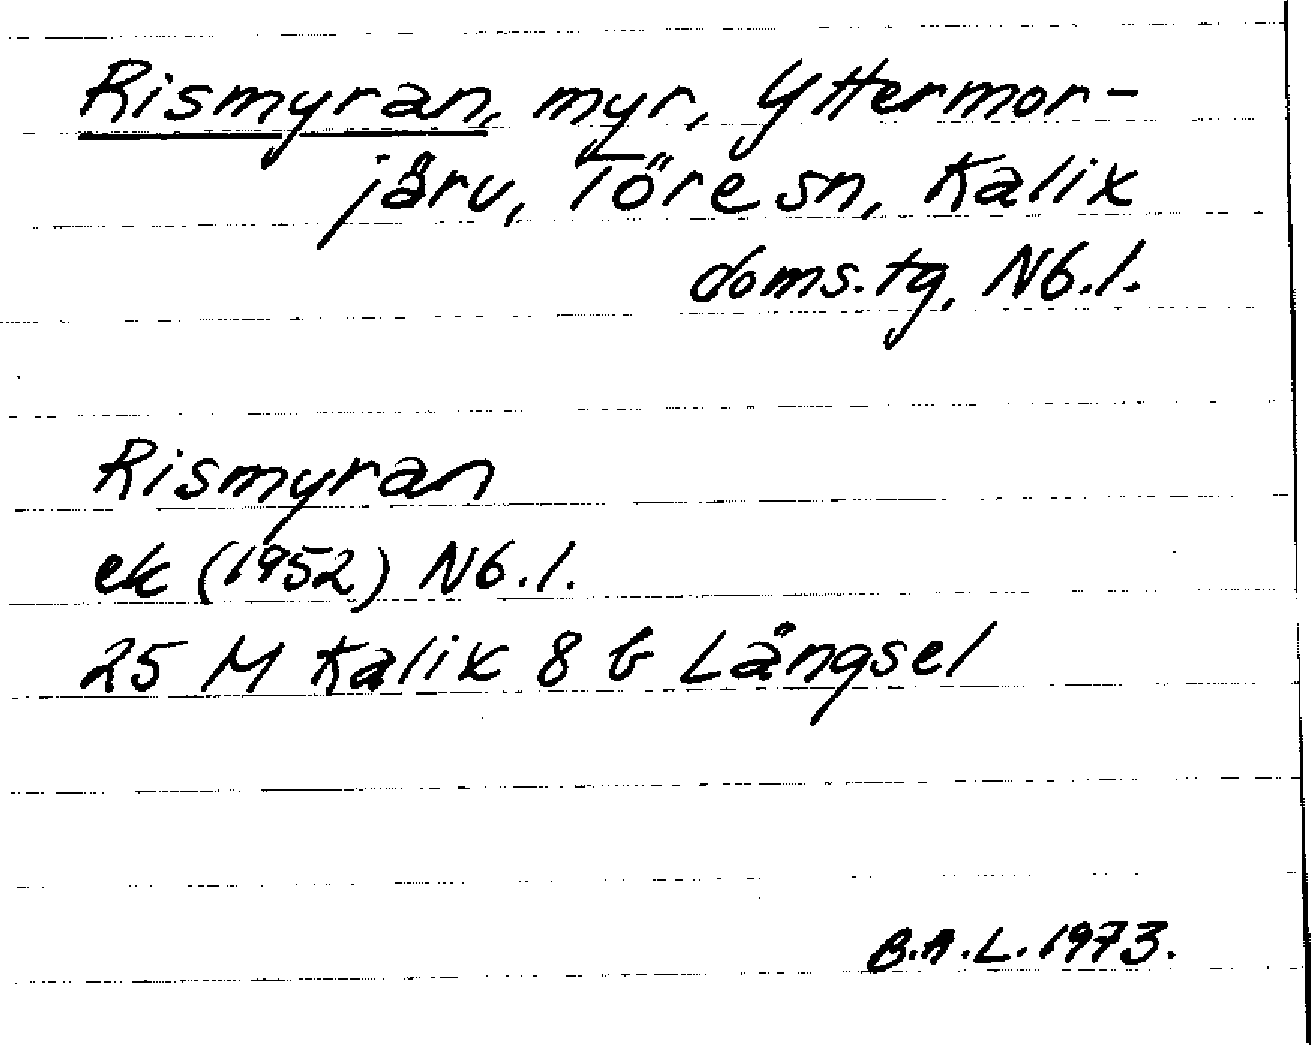 Rismyran, myr, Yttermor-
järv, Töre sn, Kalix
doms.tg, Nb.l.
Rismyran
ek (1952) Nb.l.
25 M Kalix 8 b Långsel
B.A.L. 1973.